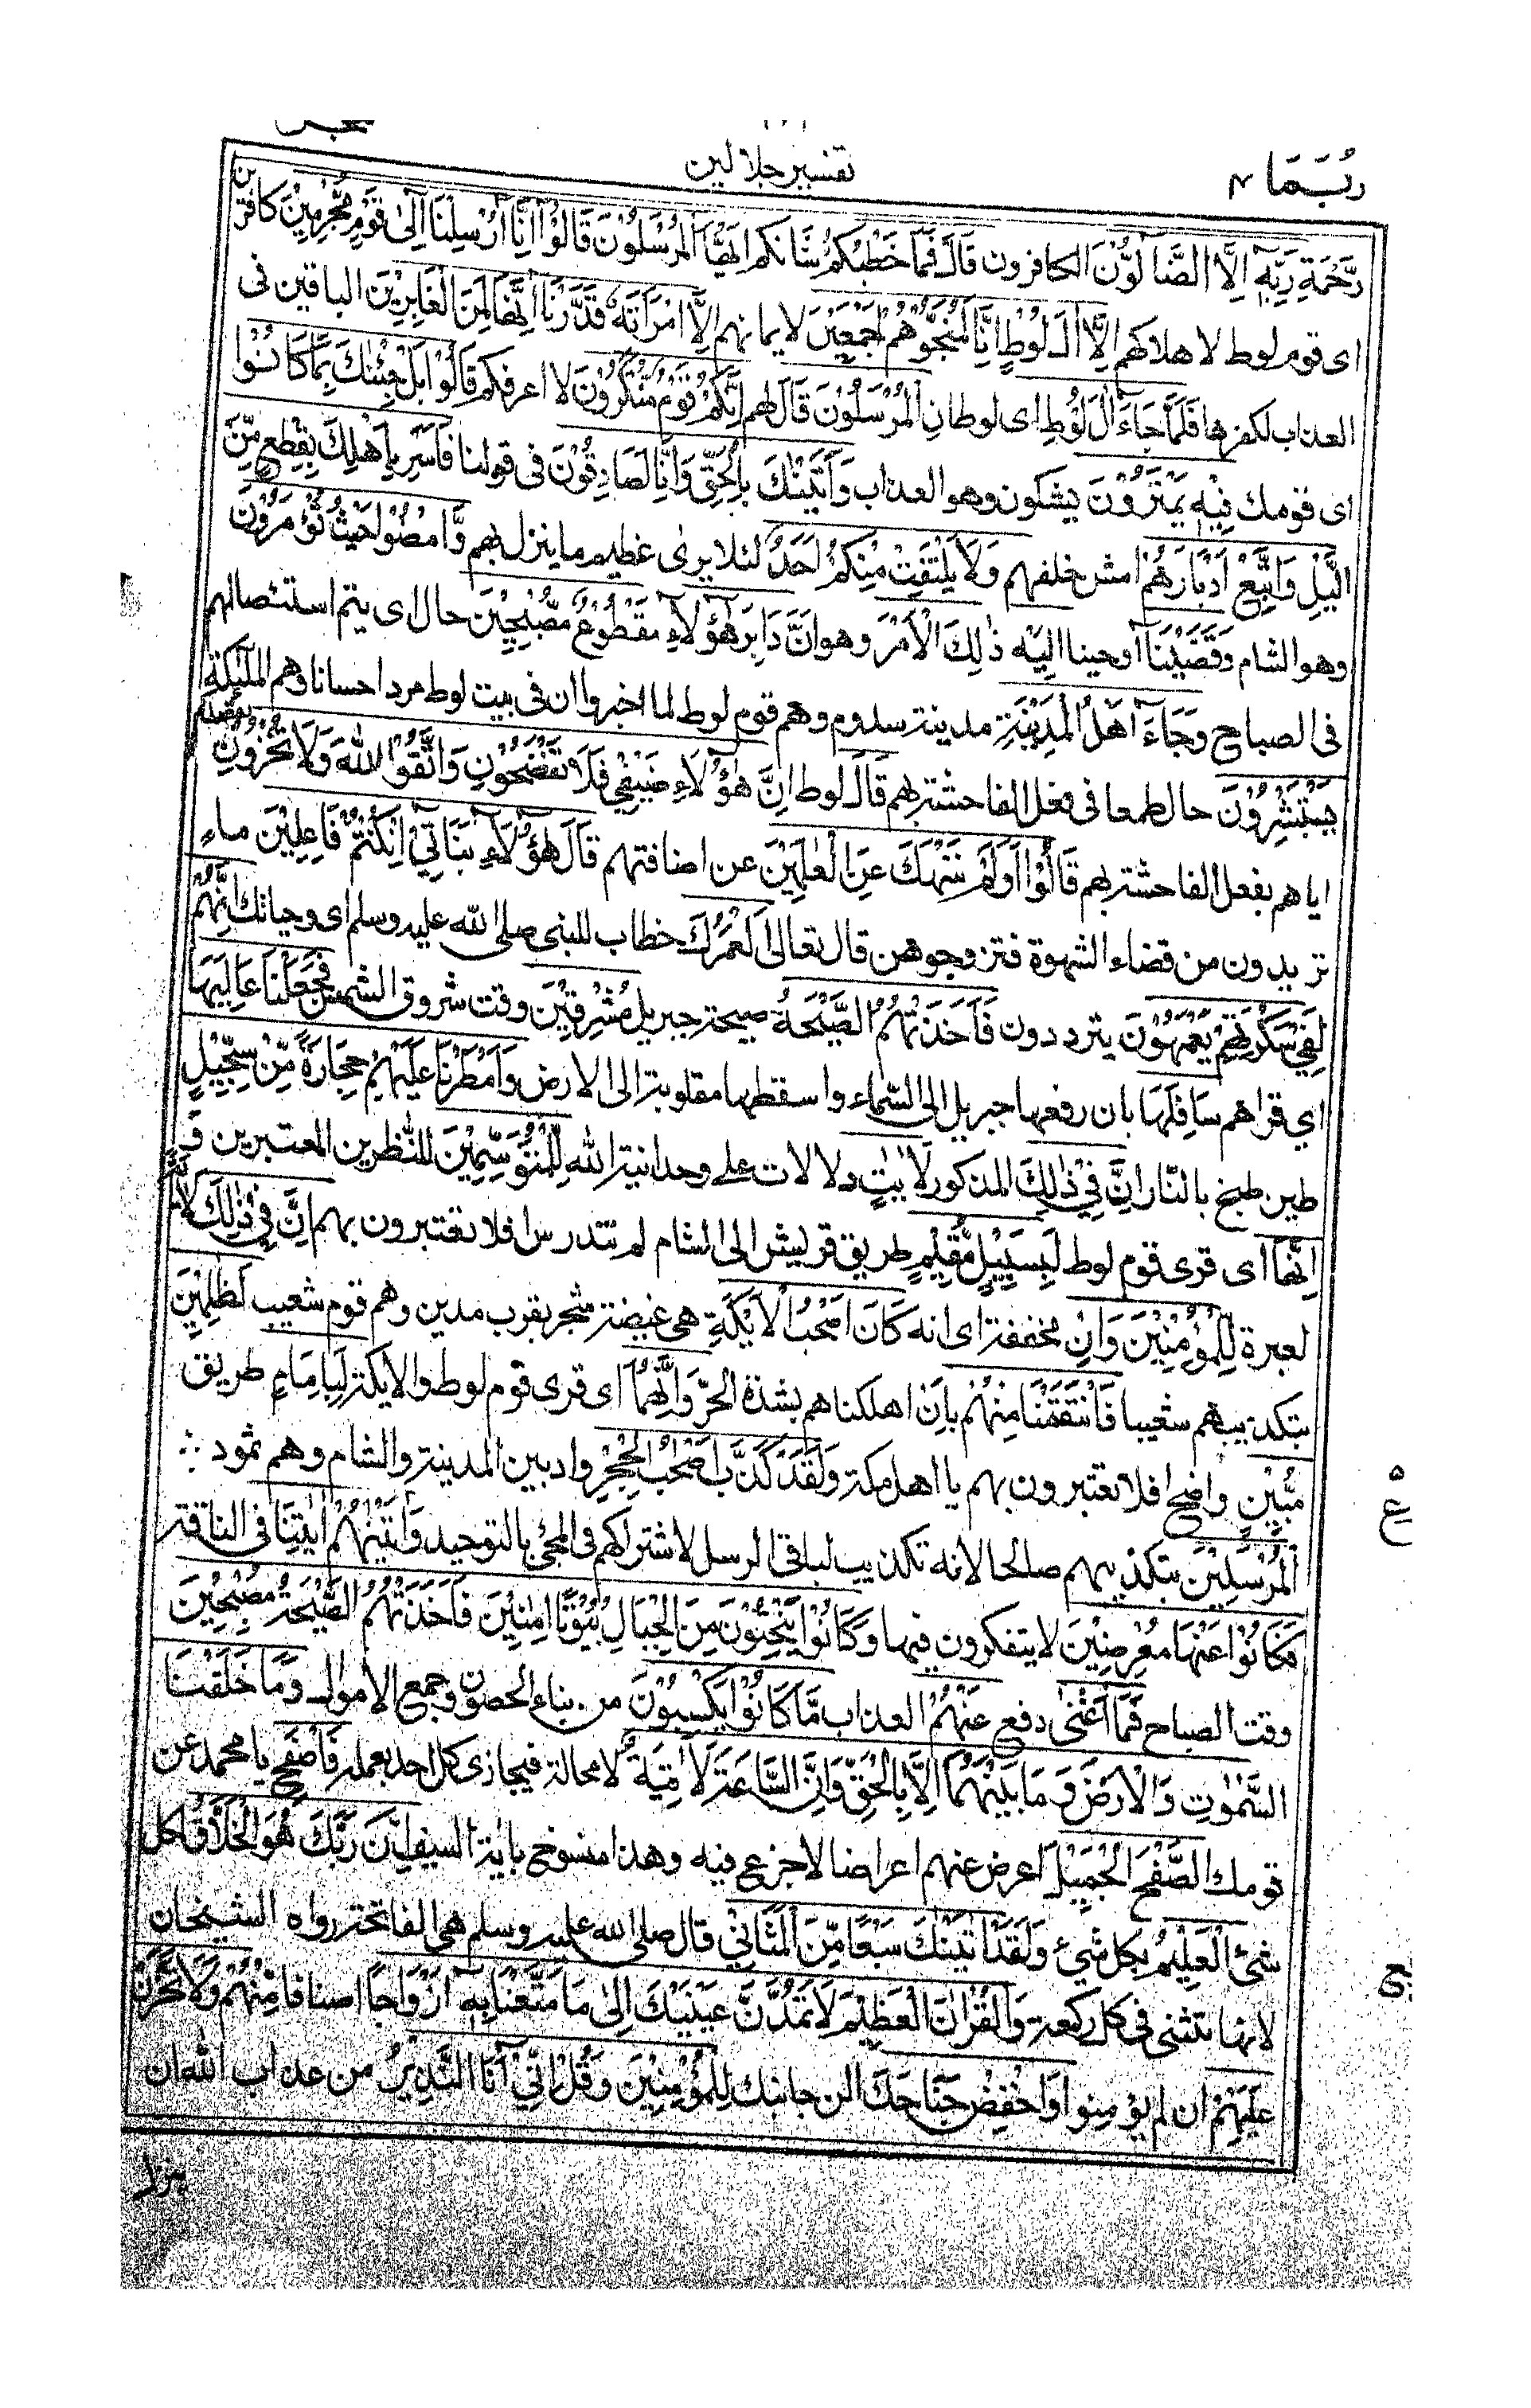 ربما ۱۴
تفسير جلالين
رَّحْمَةِ رَبِّهٖٓ اِلَّا الضَّآلُّوْنَ الكافرون قَالَ فَمَا خَطْبُكُمْ شانكم اَيُّهَا الْمُرْسَلُوْنَ قَالُوْٓا اِنَّآ اُرْسِلْنَآ اِلٰى قَوْمٍ مُّجْرِمِيْنَ كافرين
اى قوم لوط لاهلاكهم اِلَّآ اٰلَ لُوْطٍ اِنَّا لَمُنَجُّوْهُمْ اَجْمَعِيْنَ لايمانهم اِلَّا امْرَاَتَهٗ قَدَّرْنَآ اِنَّهَا لَمِنَ الْغٰبِرِيْنَ الباقين فى
العذاب لكفرها فَلَمَّا جَآءَ اٰلَ لُوْطِ اى لوطا نِ الْمُرْسَلُوْنَ قَالَ لهم اِنَّكُمْ قَوْمٌ مُّنْكَرُوْنَ لا اعرفكم قَالُوْا بَلْ جِئْنٰكَ بِمَا كَانُوْا
اى قومك فِيْهِ يَمْتَرُوْنَ يشكون وهو العذاب وَاَتَيْنٰكَ بِالْحَقِّ وَاِنَّا لَصَادِقُوْنَ فى قولنا فَاَسْرِ بِاَهْلِكَ بِقِطْعٍ مِّنَ
الَّيْلِ وَاتَّبِعْ اَدْبَارَهُمْ امش خلفهم وَلَا يَلْتَفِتْ مِنْكُمْ اَحَدٌ لئلا يرى عظيم ما ينزل بهم وَّامْضُوْا حَيْثُ تُؤْمَرُوْنَ
وهو الشام وَقَضَيْنَآ اوحينا اِلَيْهِ ذٰلِكَ الْاَمْرَ وهو اَنَّ دَابِرَ هٰٓؤُلَآءِ مَقْطُوْعٌ مُّصْبِحِيْنَ حال اى يتم استئصالهم
فى الصباح وَجَآءَ اَهْلُ الْمَدِيْنَةِ مدينة سدوم وهم قوم لوط لما اخبروا ان فى بيت لوط مردا حسانا وهم الملٰٓئكة
يَسْتَبْشِرُوْنَ حال طمعا فى فعل الفاحشة بهم قَالَ لوط اِنَّ هٰٓؤُلَآءِ ضَيْفِيْ فَلَا تَفْضَحُوْنِ وَاتَّقُوا اللّٰهَ وَلَا تُخْزُوْنِ بقصدكم
اياهم بفعل الفاحشة بهم قَالُوْٓا اَوَلَمْ نَنْهَكَ عَنِ الْعٰلَمِيْنَ عن اضافتهم قَالَ هٰٓؤُلَآءِ بَنَاتِيْٓ اِنْ كُنْتُمْ فَاعِلِيْنَ ماء
تريدون من قضاء الشهوة فتزوجوهن قال تعالى لَعَمْرُكَ خطاب للنبى صلى الله عليه وسلم اى وحياتك اِنَّهُمْ
لَفِيْ سَكْرَتِهِمْ يَعْمَهُوْنَ يترددون فَاَخَذَتْهُمُ الصَّيْحَةُ صيحة جبريل مُشْرِقِيْنَ وقت شروق الشمس فَجَعَلْنَا عَالِيَهَا
اي قراهم سَافِلَهَا بان رفعها جبريل الى السماء واسقطها مقلوبة الى الارض وَاَمْطَرْنَا عَلَيْهِمْ حِجَارَةً مِّنْ سِجِّيْلٍ
طين طبخ بالنار اِنَّ فِيْ ذٰلِكَ المذكور لَاٰيٰتٍ دلالات على وحدانية الله لِّلْمُتَوَسِّمِيْنَ للنٰظرين المعتبرين وَ
اِنَّهَا اى قرى قوم لوط لَبِسَبِيْلٍ مُّقِيْمٍ طريق قريش الى الشام لم تندرس افلا تعتبرون بهم اِنَّ فِيْ ذٰلِكَ لَاٰيَةً
لعبرة لِّلْمُؤْمِنِيْنَ وَاِنْ مخففة اى انه كَانَ اَصْحٰبُ الْاَيْكَةِ هى غيضة شجر بقرب مدين وهم قوم شعيب لَظٰلِمِيْنَ
بتكذيبهم شعيبا فَانْتَقَمْنَا مِنْهُمْ بان اهلكناهم بشدة الحرّ وَاِنَّهُمَا اى قرى قوم لوط والايكة لَبِاِمَامٍ طريق
مُّبِيْنٍ واضح افلا تعتبرون بهم يا اهل مكة وَلَقَدْ كَذَّبَ اَصْحٰبُ الْحِجْرِ واد بين المدينة والشام وهم ثمود
الْمُرْسَلِيْنَ بتكذيبهم صالحا لانه تكذيب لباقى الرسل لاشتراكهم فى المجئ بالتوحيد وَاٰتَيْنٰهُمْ اٰيٰتِنَا فى الناقة
فَكَانُوْا عَنْهَا مُعْرِضِيْنَ لا يتفكرون فيها وَكَانُوْا يَنْحِتُوْنَ مِنَ الْجِبَالِ بُيُوْتًا اٰمِنِيْنَ فَاَخَذَتْهُمُ الصَّيْحَةُ مُصْبِحِيْنَ
وقت الصباح فَمَآ اَغْنٰى دفع عَنْهُمْ العذاب مَّا كَانُوْا يَكْسِبُوْنَ من بناء الحصون وجمع الاموال وَمَا خَلَقْنَا
السَّمٰوٰتِ وَالْاَرْضَ وَمَا بَيْنَهُمَآ اِلَّا بِالْحَقِّ وَاِنَّ السَّاعَةَ لَاٰتِيَةٌ لا محالة فيجازى كل احد بعمله فَاصْفَحِ يا محمد عن
قومك الصَّفْحَ الْجَمِيْلَ اعرض عنهم اعراضا لا جزع فيه وهذا منسوخ باية السيف اِنَّ رَبَّكَ هُوَ الْخَلّٰقُ لكل
شئ الْعَلِيْمُ بكل شئ وَلَقَدْ اٰتَيْنٰكَ سَبْعًا مِّنَ الْمَثَانِيْ قال صلى الله عليه وسلم هى الفاتحة رواه الشيخان
لانها تثنى فى كل ركعة وَالْقُرْاٰنَ الْعَظِيْمَ لَا تَمُدَّنَّ عَيْنَيْكَ اِلٰى مَا مَتَّعْنَا بِهٖٓ اَزْوَاجًا اصنافا مِّنْهُمْ وَلَا تَحْزَنْ
عَلَيْهِمْ ان لم يؤمنوا وَاخْفِضْ جَنَاحَكَ الن جانبك لِلْمُؤْمِنِيْنَ وَقُلْ اِنِّيْٓ اَنَا النَّذِيْرُ من عذاب الله ان
۵
ع